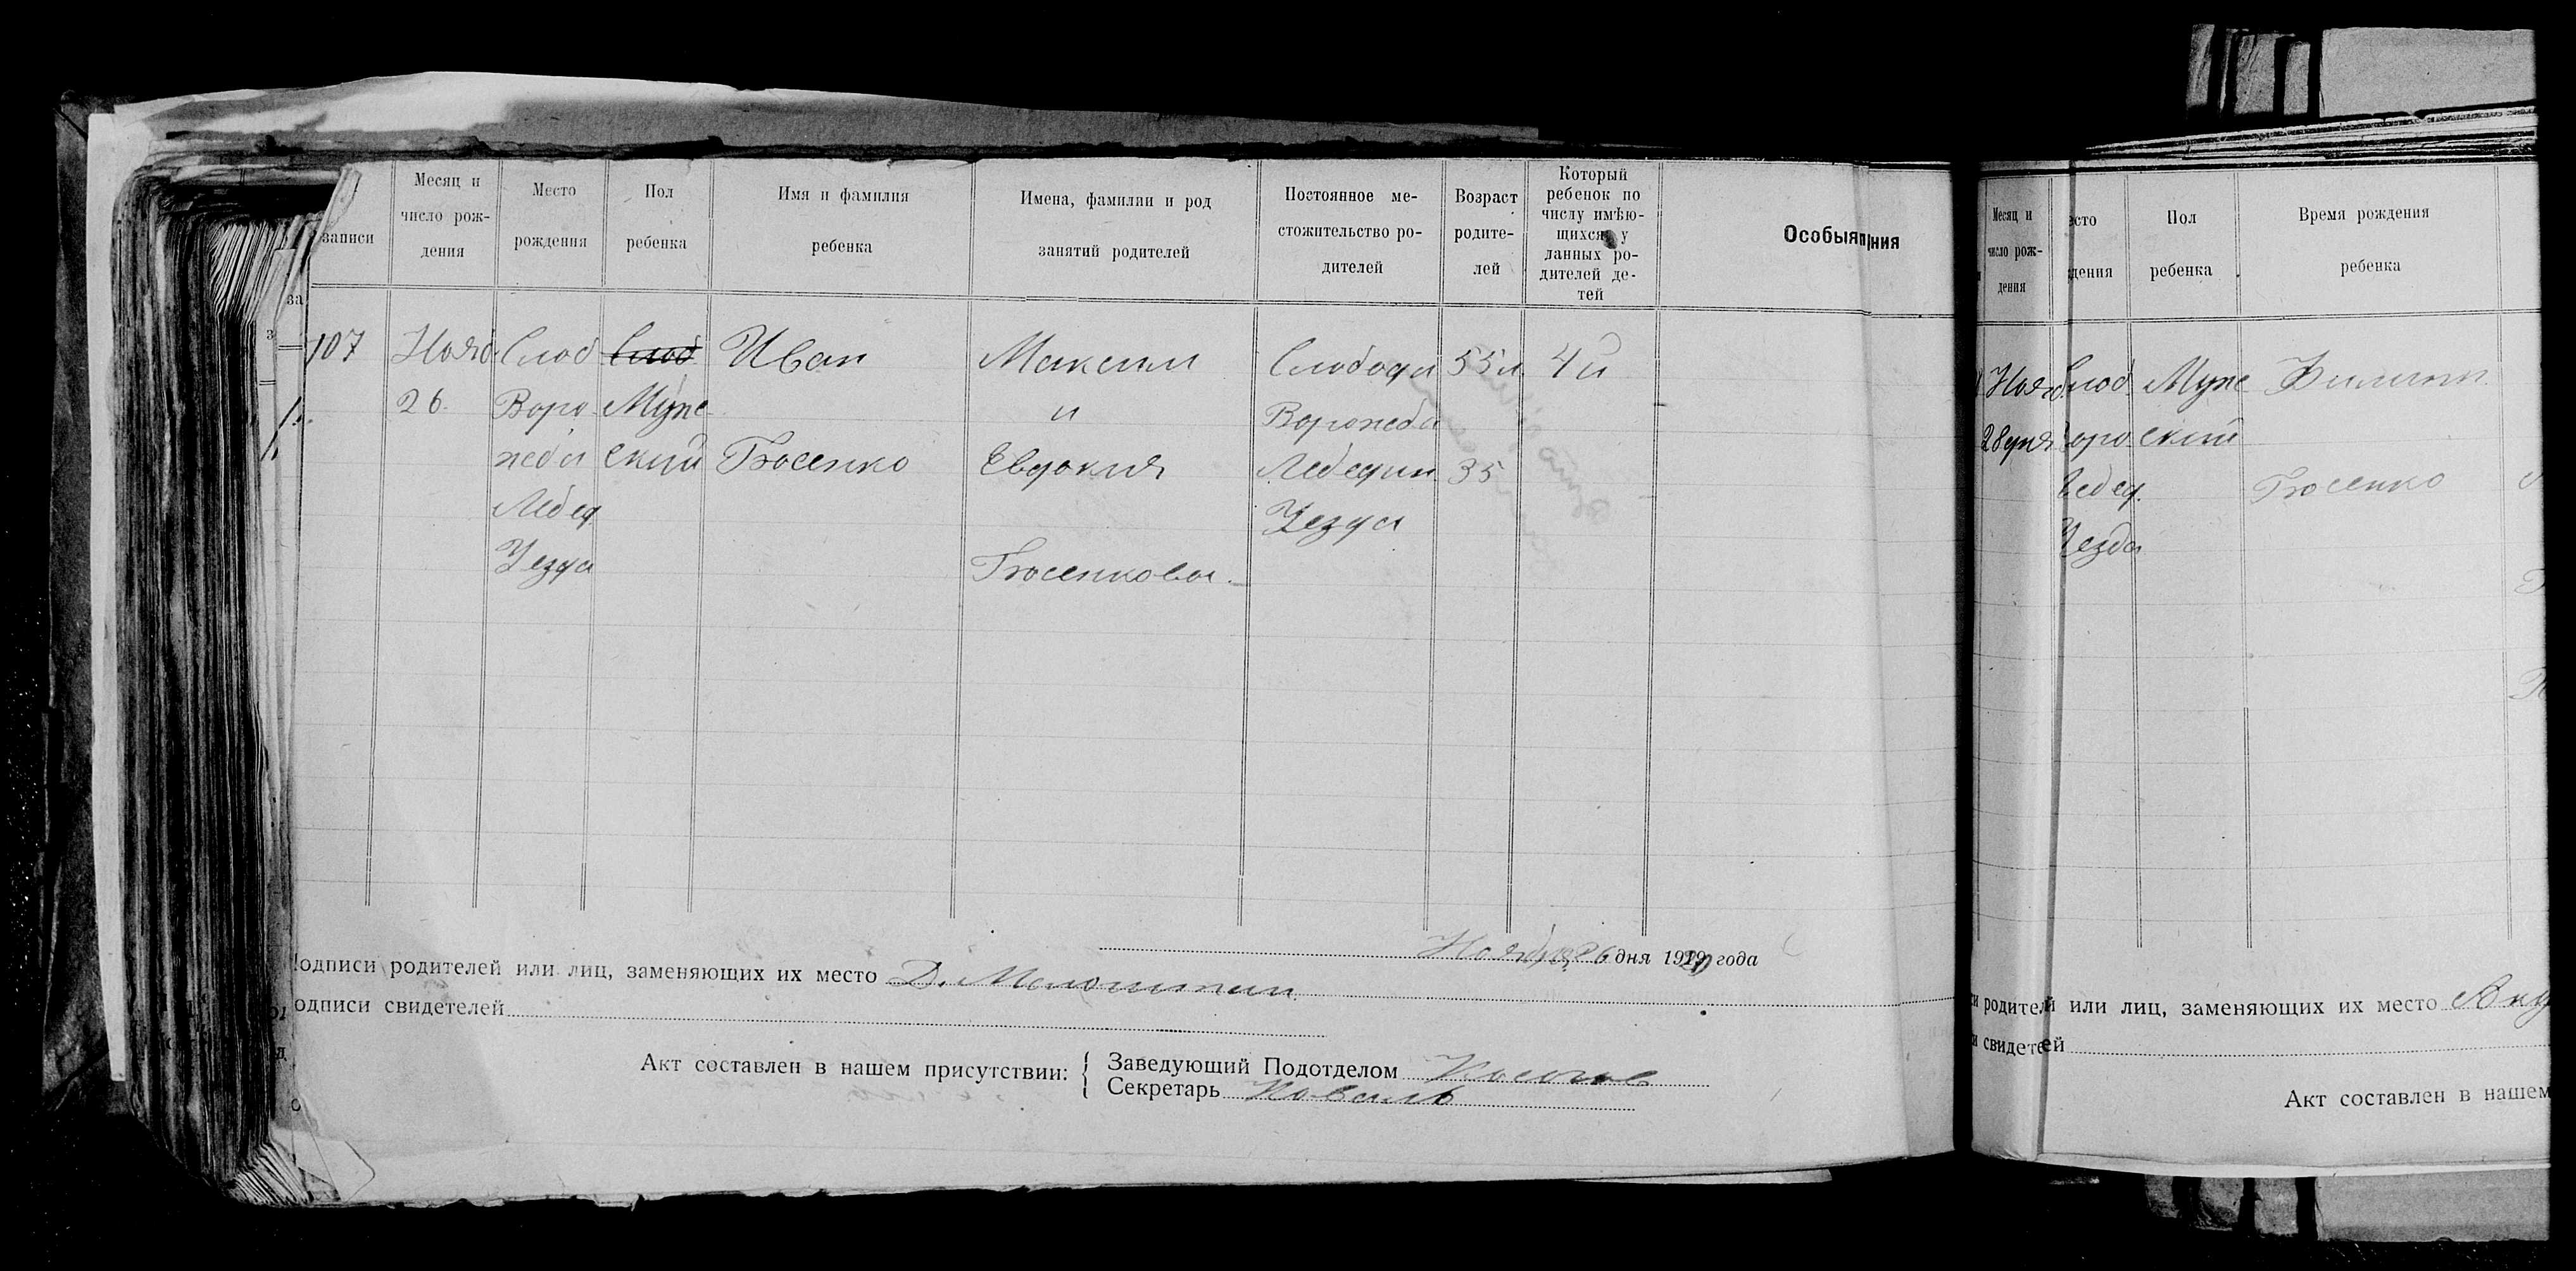 записи
Месяц и
число рож-
дения
Место
рождения
Пол
ребенка
Имя и фамилия
ребенка
Имена, фамилии и род
занятий родителей
Постоянное ме-
стожительство ро-
дителей
Возраст
родите-
лей
Который
ребенок по
числу имѣю-
щихся у
данных ро-
дителей де-
тей
107
Нояб
26
Слоб
Воро
жеба
Лебед
Уезда
Слоб
Муже
ский
Иван
Гвосенко
Максим
и
Евдокия
Гвосенковы.
Слобода
Ворожеба
Лебедин
Уезда
55л
35
4й
Ноября 26 дня года
одписи родителей или лиц, заменяющих их место
одписи свидетелей
Акт составлен в нашем присутствии:
Заведующий Подотделом
Секретарь Коваль
Месяц и
число рож-
дения
есто
дения
Пол
ребенка
Время рождения
ребенка
Нояб
28 дня
лоб
оро
Лебед.
Уезда
Муже
ский
Филипп
Гвосенко
родителей или лиц, заменяющих их место
свидетелей
Акт составлен в нашем